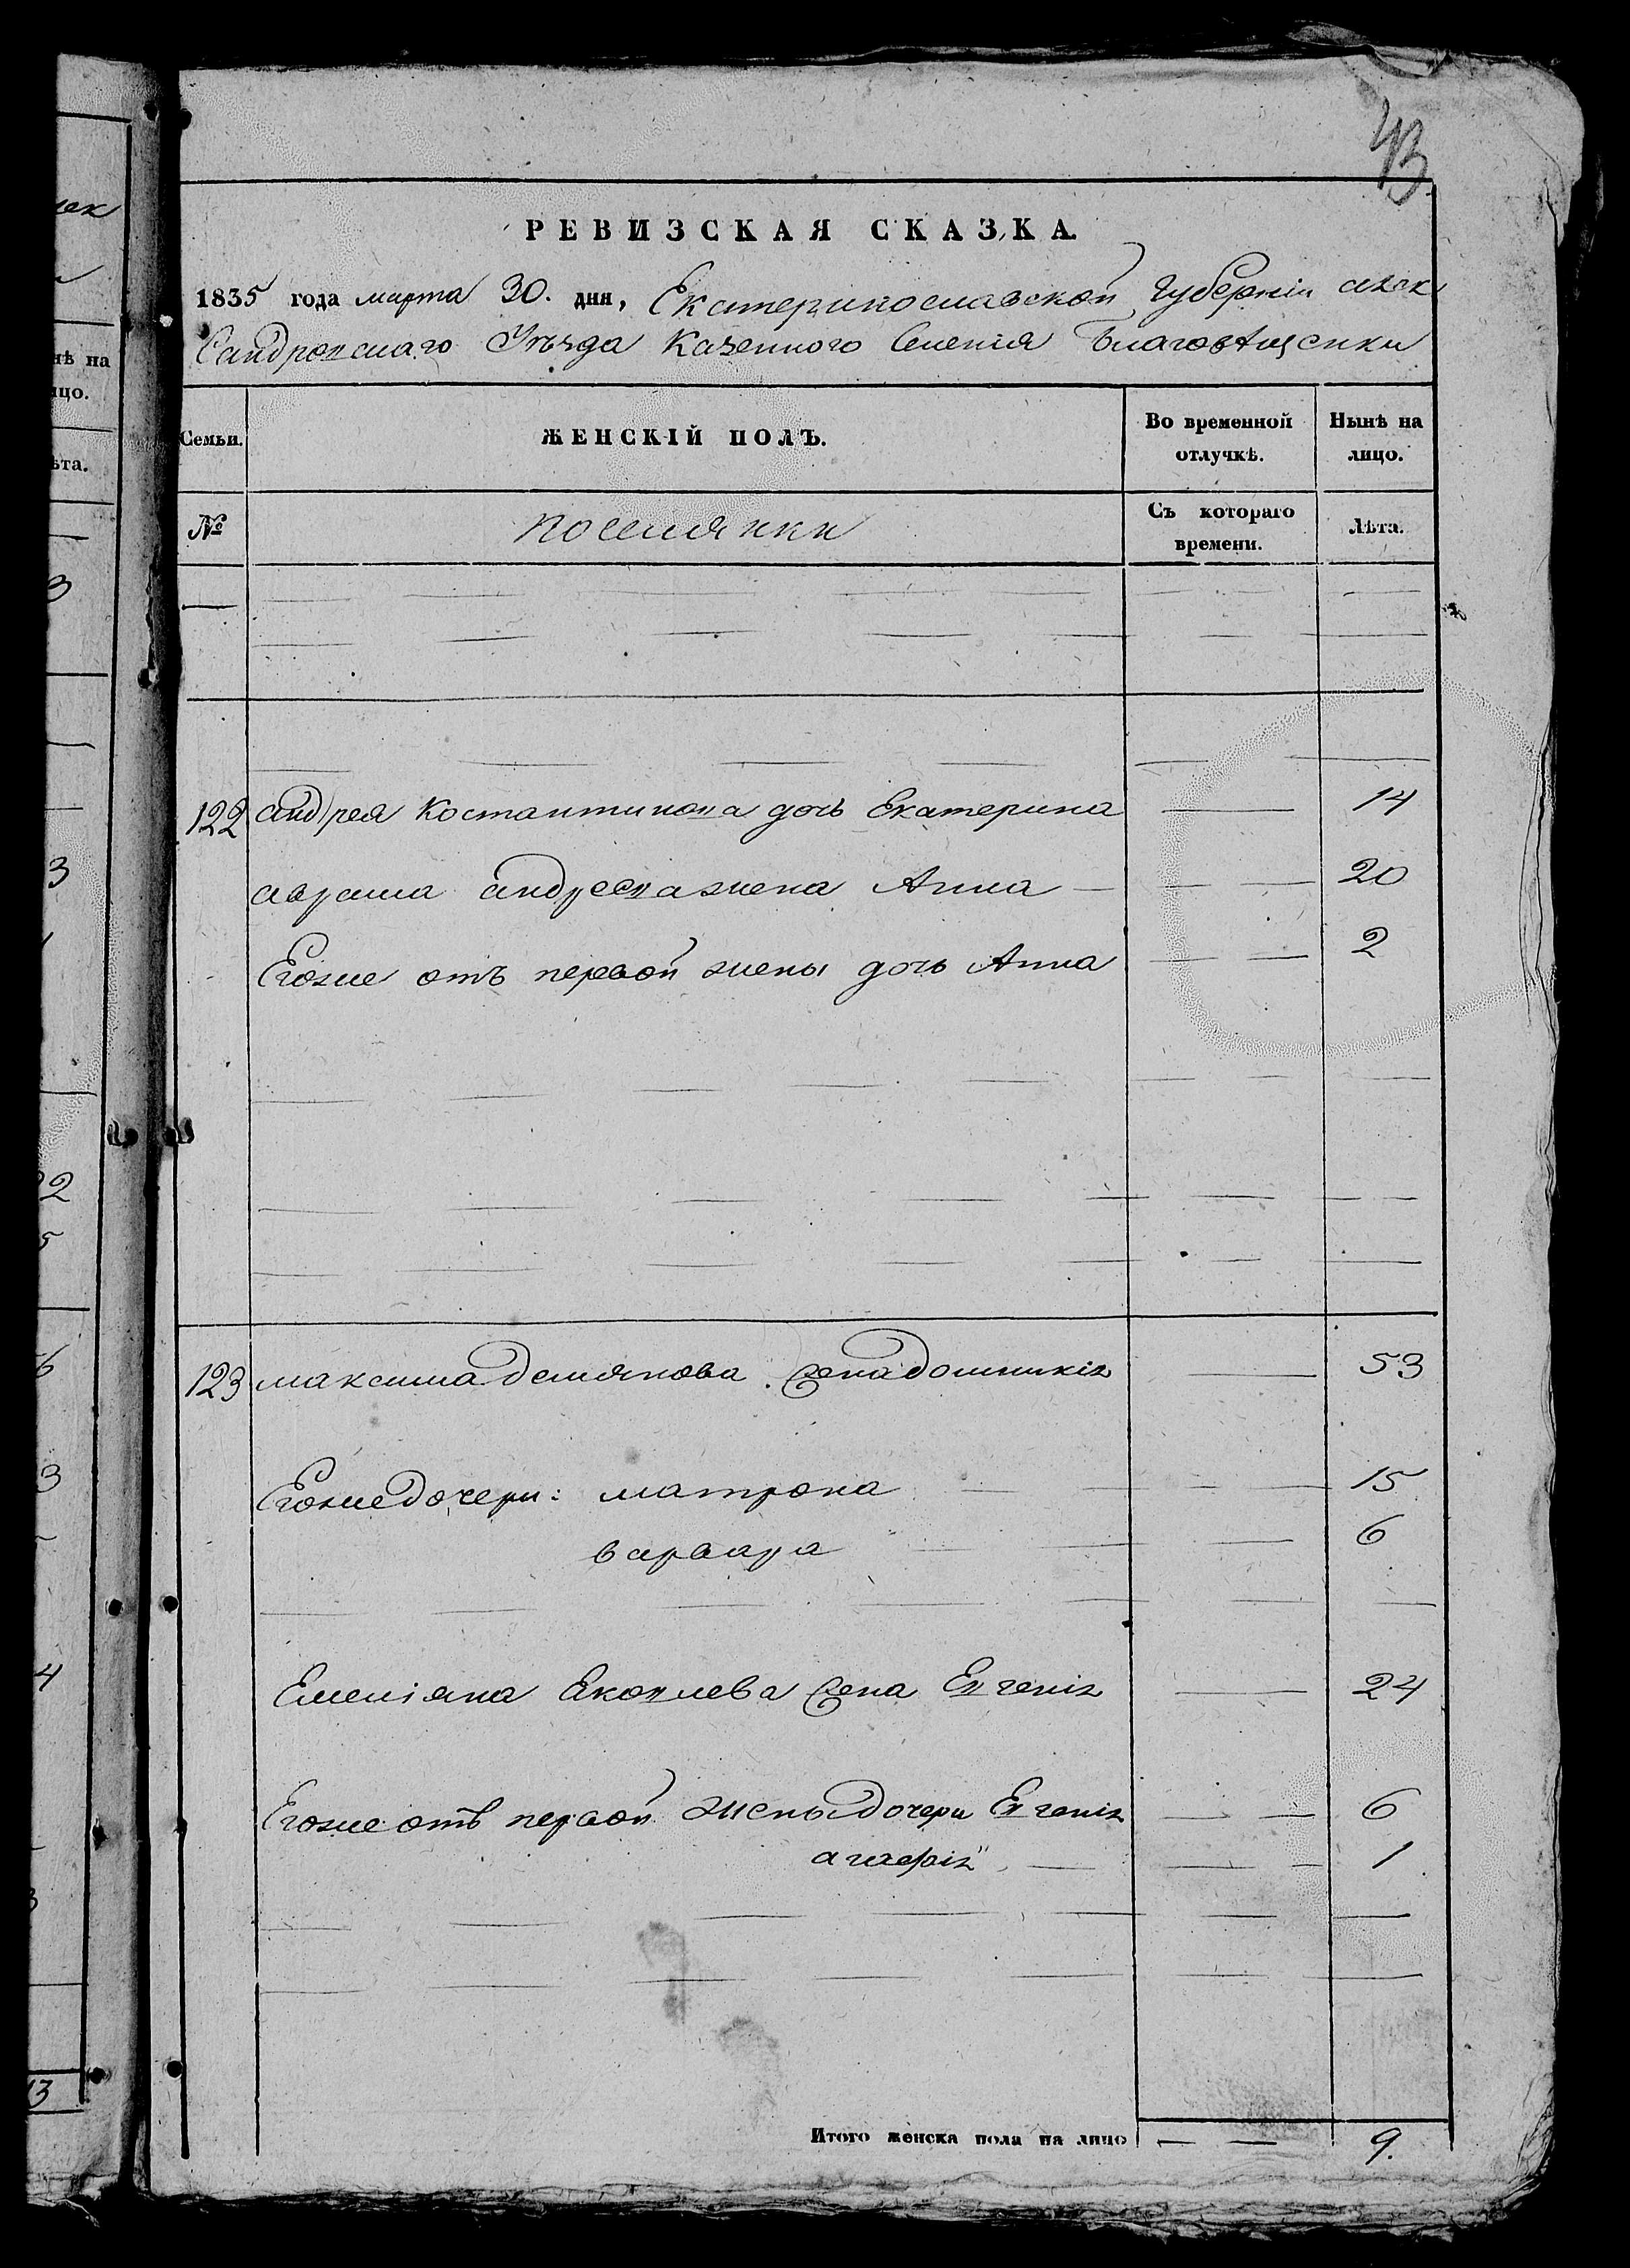 43
РЕВИЗСКАЯ СКАЗКА.
1835 года марта 30. дня, Екатеринославской Губерніи алек
сандровскаго Уѣзда Казенного Селенія Благовѣщенки
Семьи. ЖЕНСКІЙ ПОЛЪ. Во временной отлучкѣ. Нынѣ на лицо.
№ поселянки Съ котораго времени. Лѣта.
122 андрея Костантинова дочь Екатерина 14
аврама андреева жена Анна 20
Егоже отъ первой жены дочь Анна 2
123 максима Демянова жена домникія 53
Егоже дочери: матрона 15
варвара 6
Емеліяна Яковлева жена Евгенія 24
Егоже отъ первой жены дочери Евгенія 6
агафія 1
Итого женска пола на лицо 9.